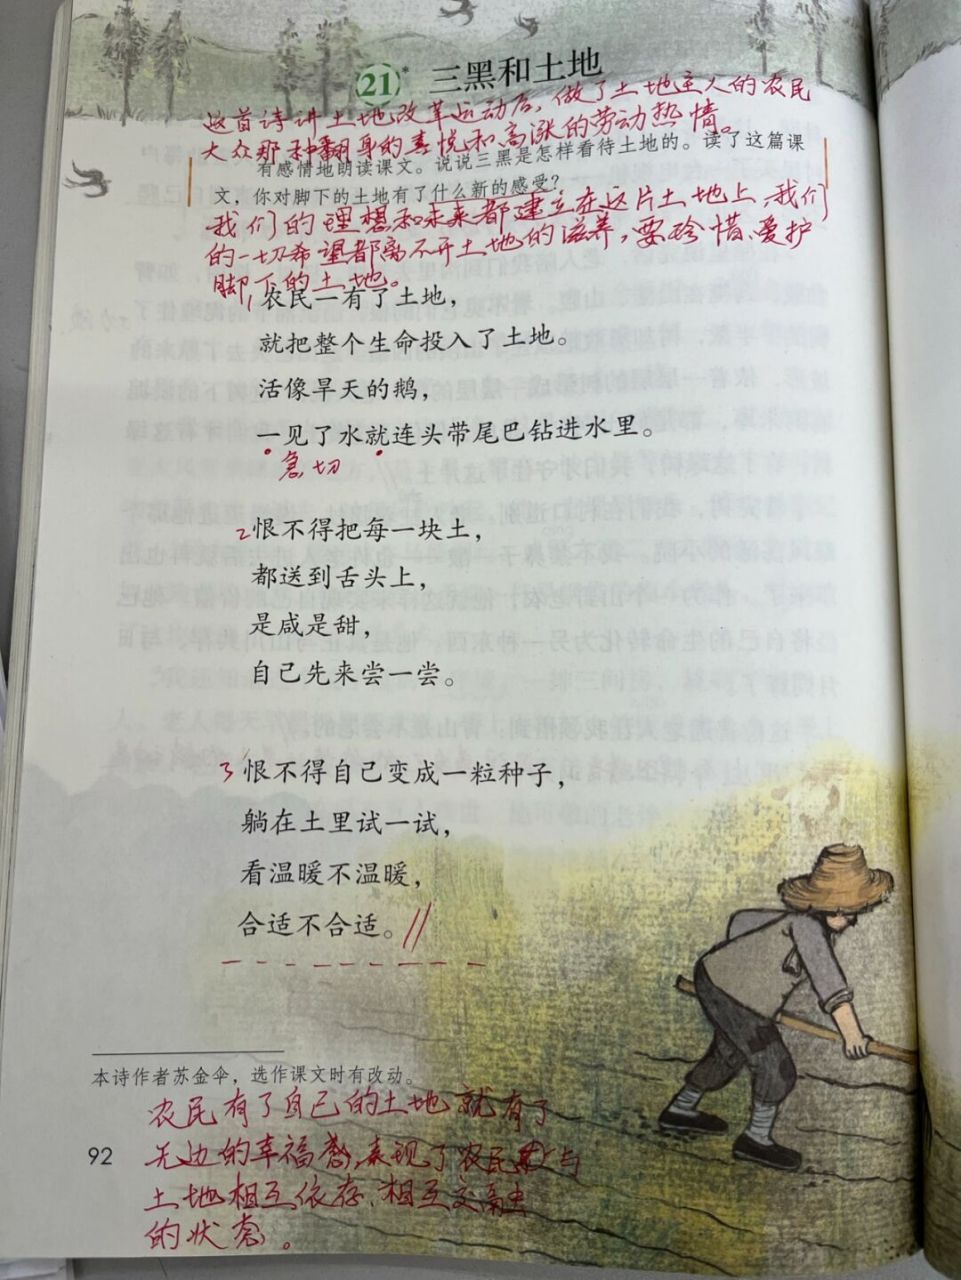 21* 三黑和土地
这首诗讲土地改革运动后，做了土地主人的农民
大众那种翻身的喜悦和高涨的劳动热情。
有感情地朗读课文。说说三黑是怎样看待土地的。读了这篇课
文，你对脚下的土地有了什么新的感受？
我们的理想和未来都建立在这片土地上，我们
的一切希望都离不开土地的滋养，要珍惜、爱护
脚下的土地。
1 农民一有了土地，
就把整个生命投入了土地。
活像旱天的鹅，
一见了水就连头带尾巴钻进水里。
急切
2 恨不得把每一块土，
都送到舌头上，
是咸是甜，
自己先来尝一尝。
3 恨不得自己变成一粒种子，
躺在土里试一试，
看温暖不温暖，
合适不合适。
本诗作者苏金伞，选作课文时有改动。
农民有了自己的土地就有了
92 无边的幸福感，表现了农民与
土地相互依存、相互交融
的状态。